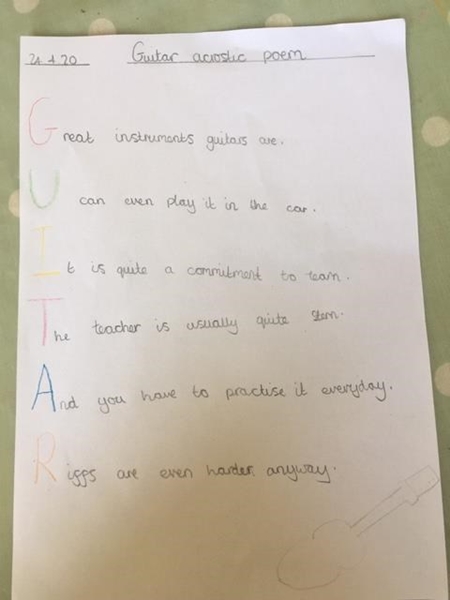 21.1.20 Guitar acrostic poem
Great instruments guitars are.
U can even play it in the car.
It is quite a commitment to learn.
The teacher is usually quite stern.
And you have to practise it everyday.
Riffs are even harder anyway.